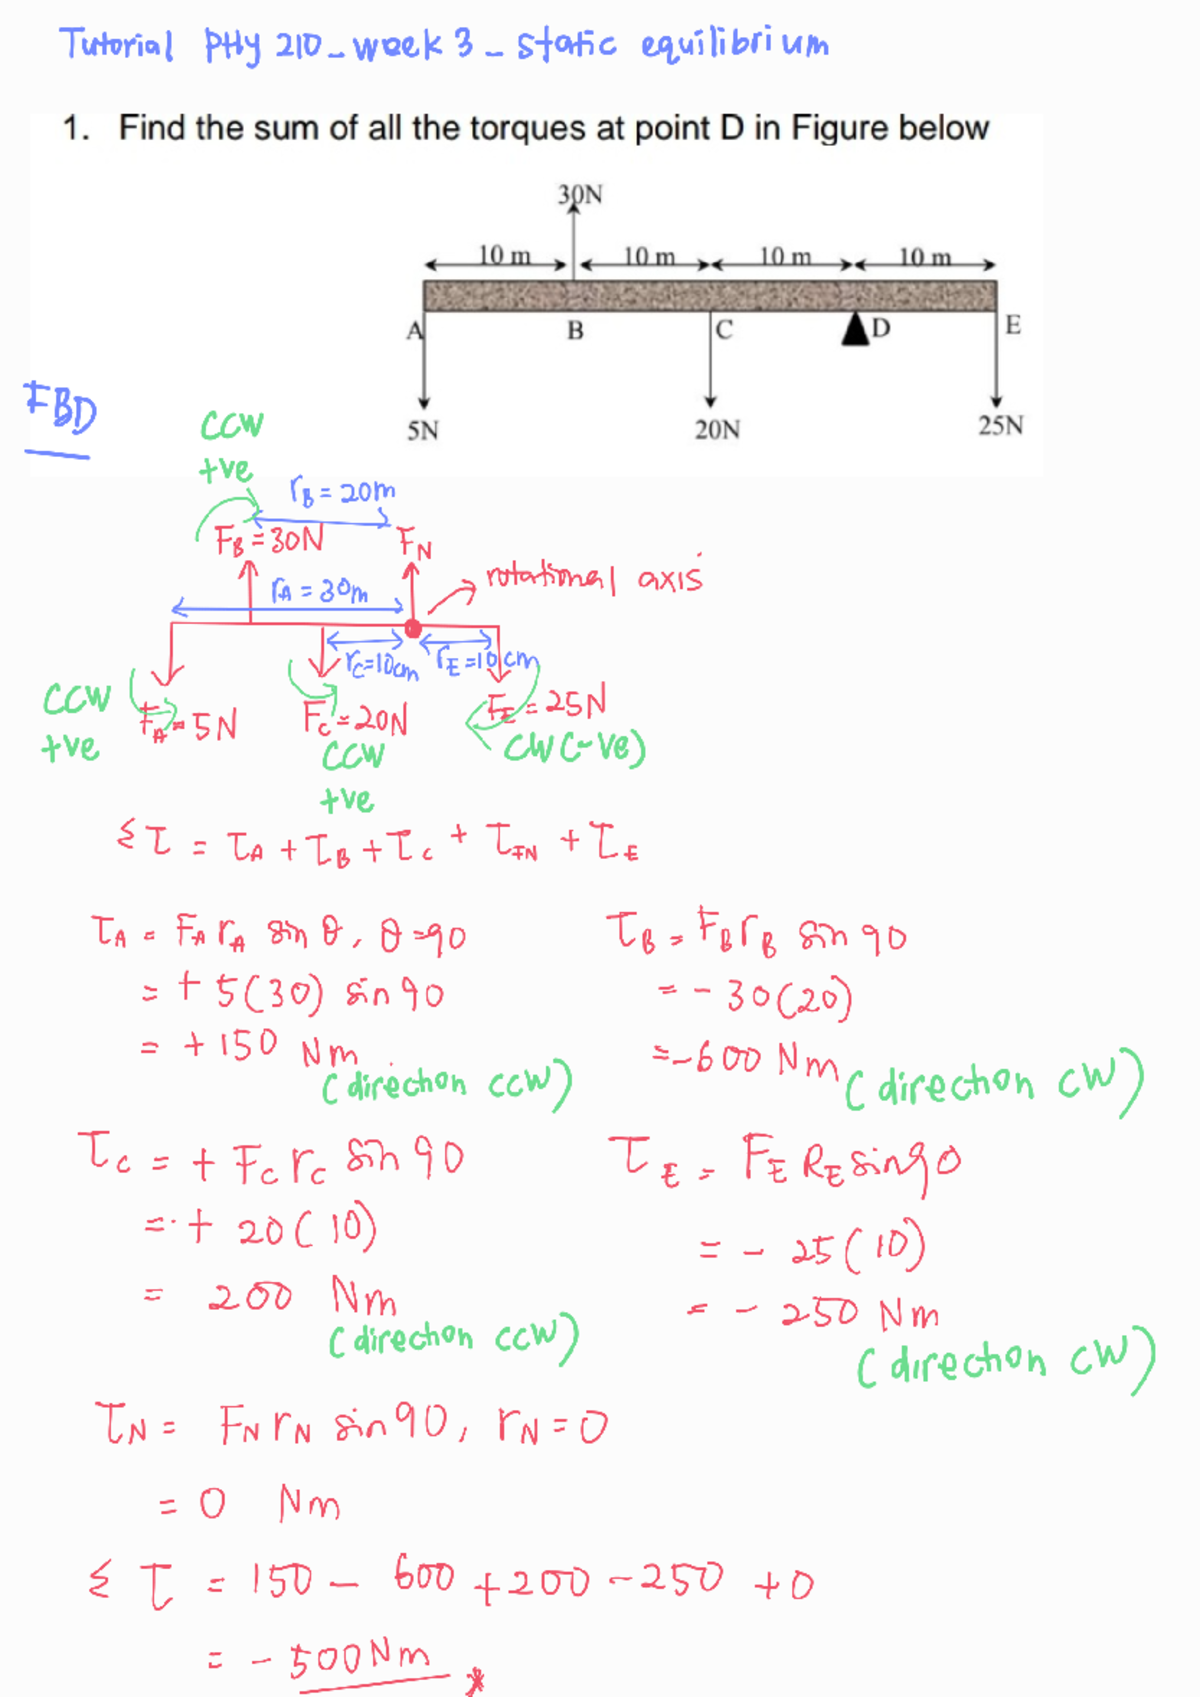 Tutorial PHY 210 - week 3 - static equilibrium
1. Find the sum of all the torques at point D in Figure below
30N
10 m 10 m 10 m 10 m
A B C D E
5N 20N 25N
FBD
CCW
+ve
rB = 20m
FB = 30N FN
rA = 30m
rotational axis
rC=10cm rE=10cm
CCW
+ve
FA = 5N
FC = 20N
CCW
+ve
FE = 25N
CW (-ve)
Στ = τA + τB + τC + τFN + τE
τA = FA rA sin θ, θ=90
= + 5(30) sin 90
= + 150 Nm
(direction CCW)
τB = FB rB sin 90
= - 30(20)
= -600 Nm
(direction CW)
τC = + FC rC sin 90
= + 20(10)
= 200 Nm
(direction CCW)
τE = FE RE sin 90
= - 25(10)
= - 250 Nm
(direction CW)
τN = FN rN sin 90, rN = 0
= 0 Nm
Στ = 150 - 600 + 200 - 250 + 0
= - 500 Nm *